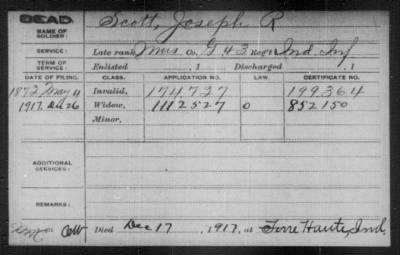 DEAD
NAME OF SOLDIER: Scott, Joseph R
SERVICE: Late rank, Mus Co. G 43 Reg't Ind. Inf
TERM OF SERVICE: Enlisted , 1 Discharged , 1
DATE OF FILING. CLASS. APPLICATION NO. LAW. CERTIFICATE NO.
1872 May 11 Invalid, 174,727 199,364
1917. Dec 26 Widow, 1112527 0 852150
Minor,
ADDITIONAL SERVICES:
REMARKS:
Died Dec 17, 1917, at Terre Haute, Ind.